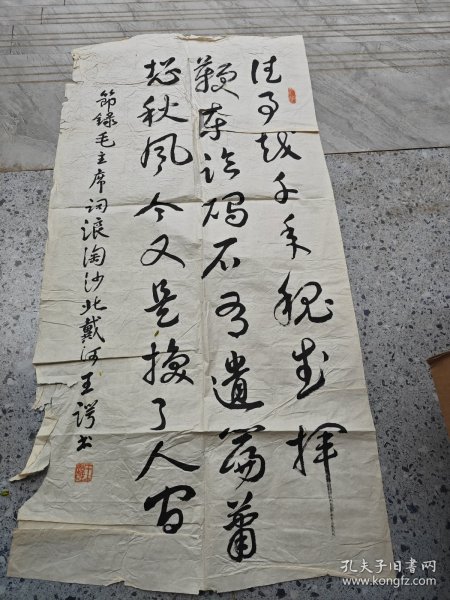 往事越千年魏武挥
鞭东临碣石有遺篇蕭
瑟秋风今又是换了人间
節錄毛主席词浪淘沙北戴河王諤书
孔夫子旧书网
www.kongfz.com